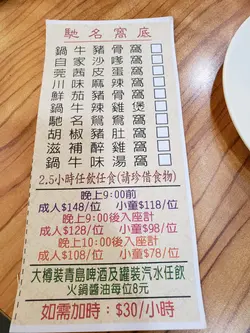 馳名窩底
鍋牛豬骨窩 □
自家沙嗲窩 □
莞茜皮蛋窩 □
川味麻辣窩 □
鮮茄豬骨窩 □
鍋牛辣雞煲 □
馳名鴛鴦窩 □
胡椒豬肚窩 □
滋補醉雞窩 □
鍋牛味湯窩 □
2.5小時任飲任食(請珍惜食物)
晚上9:00前
成人$148/位 小童$118/位
晚上9:00後入座計
成人$128/位 小童$98/位
晚上10:00後入座計
成人$108/位 小童$78/位
大樽裝青島啤酒及罐裝汽水任飲
火鍋醬油每位8元
如需加時：$30/小時